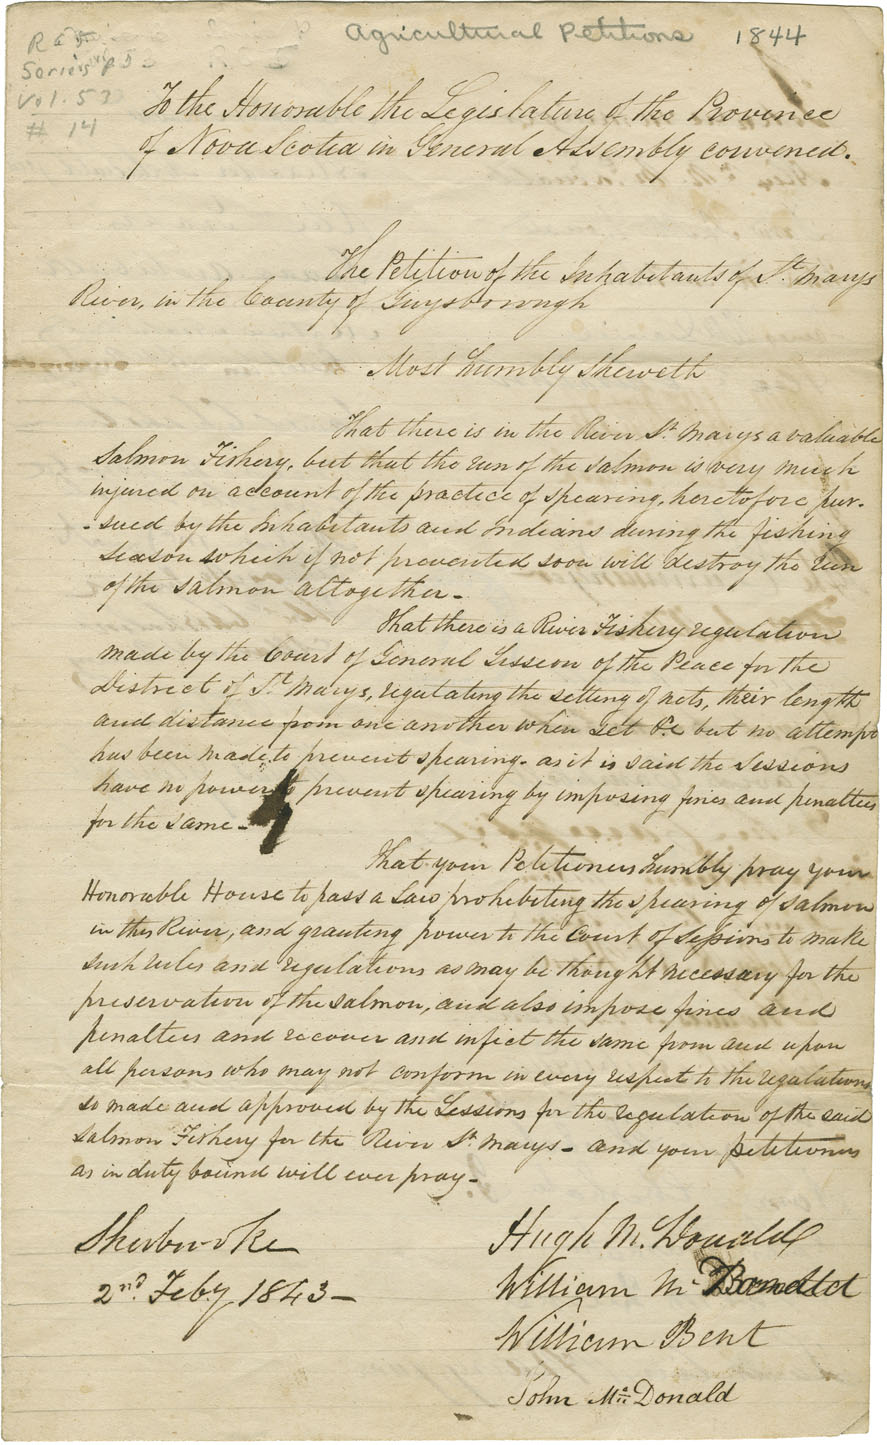 Agricultural Petitions 1844
Series P
Vol. 53
# 14
To the Honorable the Legislature of the Province
of Nova Scotia in General Assembly convened.
The Petition of the Inhabitants of St. Marys
River, in the County of Guysborough
Most humbly Sheweth
That there is in the River St. Marys a valuable
Salmon Fishery, but that the run of the salmon is very much
injured on account of the practice of spearing, heretofore pur-
-sued by the Inhabitants and Indians during the fishing
season which if not prevented soon will destroy the run
of the salmon altogether-
That there is a River Fishery regulation
made by the Court of General Session of the Peace for the
District of St. Marys, regulating the setting of nets, their length
and distance from one another when set &c but no attempt
has been made to prevent spearing- as it is said the Sessions
have no power to prevent spearing by imposing fines and penalties
for the same-
That your Petitioners humbly pray your
Honorable House to pass a Law prohibiting the spearing of salmon
in this River, and granting power to the Court of Sessions to make
such rules and regulations as may be thought necessary for the
preservation of the salmon, and also impose fines and
penalties and recover and inflict the same from and upon
all persons who may not conform in every respect to the regulations
so made and approved by the Sessions for the regulation of the said
Salmon Fishery for the River St. Marys- and your petitioners
as in duty bound will ever pray-
Sherbrooke
2nd. Feby 1843-
Hugh McDonald
William Mc
William Bent
John McDonald